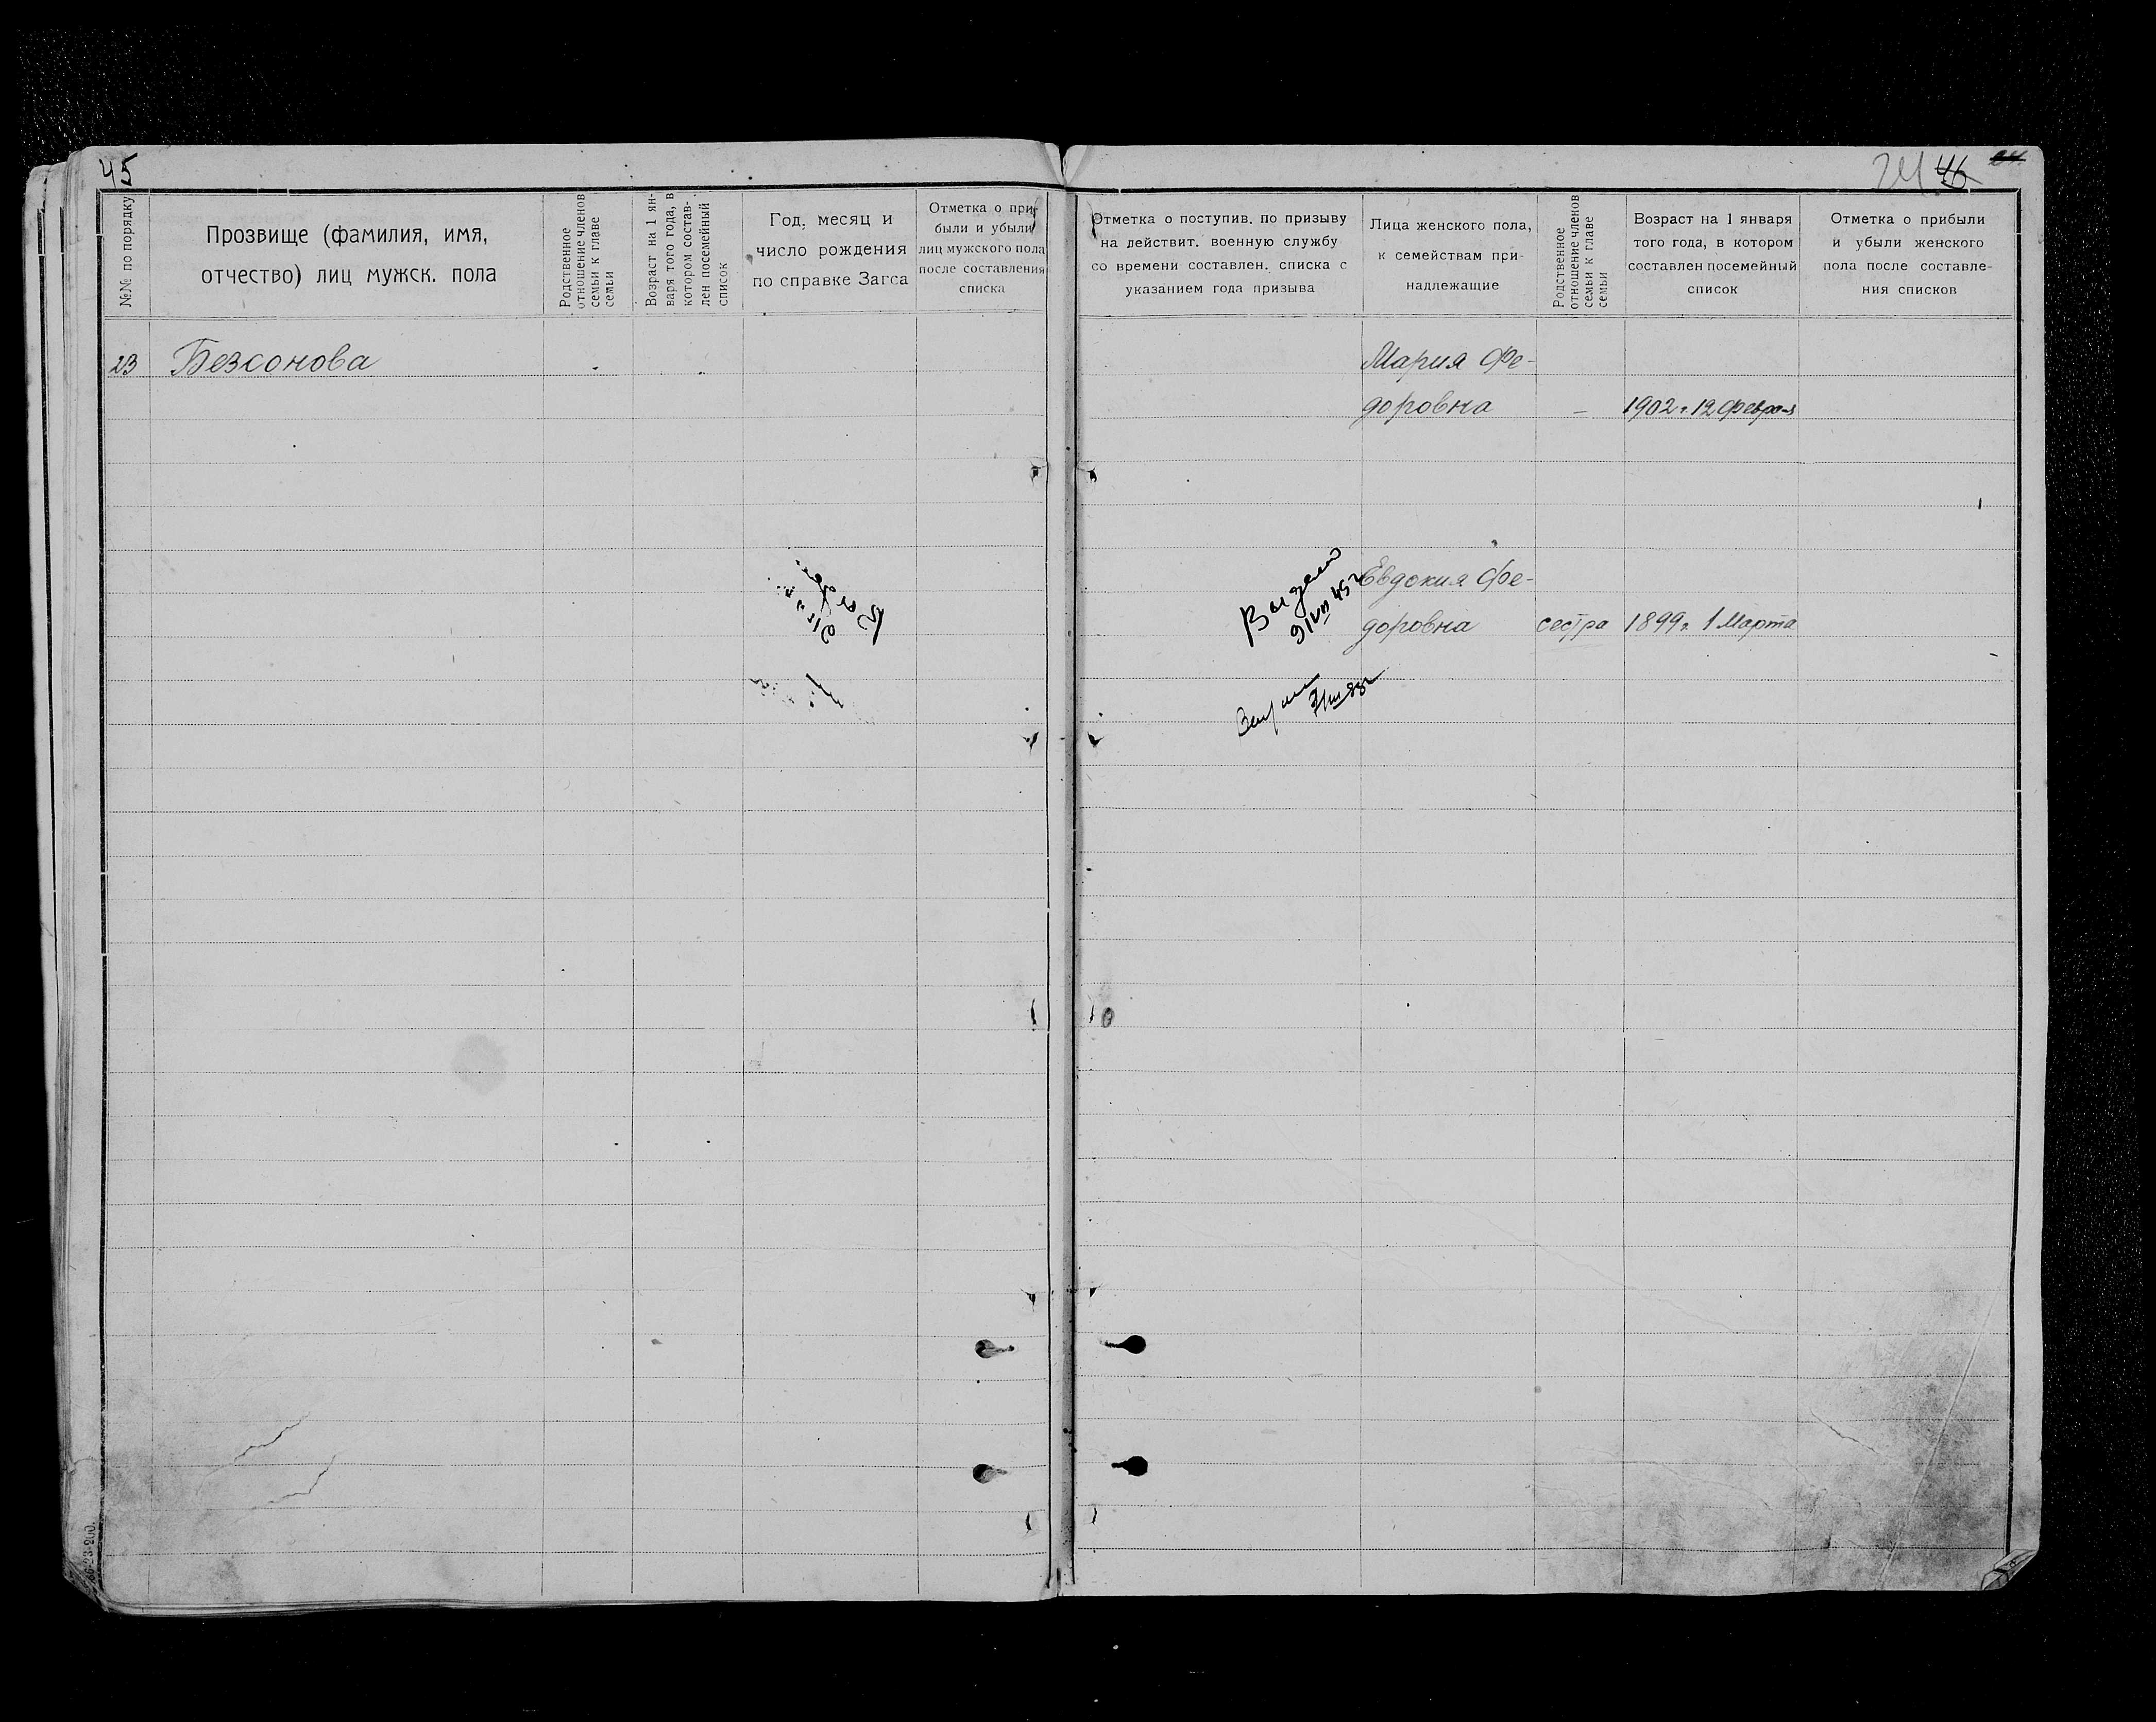 45
№№ по порядку
Прозвище (фамилия, имя,
отчество) лиц мужск. пола
Родственное
отношение членов
семьи к главе
семьи
Возраст на 1 ян-
варя того года, в
котором состав-
лен посемейный
список
Год, месяц и
число рождения
по справке Загса
Отметка о при-
были и убыли
лиц мужского пола
после составления
списка
23 Безсонова
46
Отметка о поступив. по призыву
на действит. военную службу
со времени составлен. списка с
указанием года призыва
Лица женского пола,
к семействам при-
надлежащие
Родственное
отношение членов
семьи к главе
семьи
Возраст на 1 января
того года, в котором
составлен посемейный
список
Отметка о прибыли
и убыли женского
пола после составле-
ния списков
Мария Фе-
доровна – 1902 г. 12 февра-я
Евдокия Фе-
доровна сестра 1899 г. 1 Марта